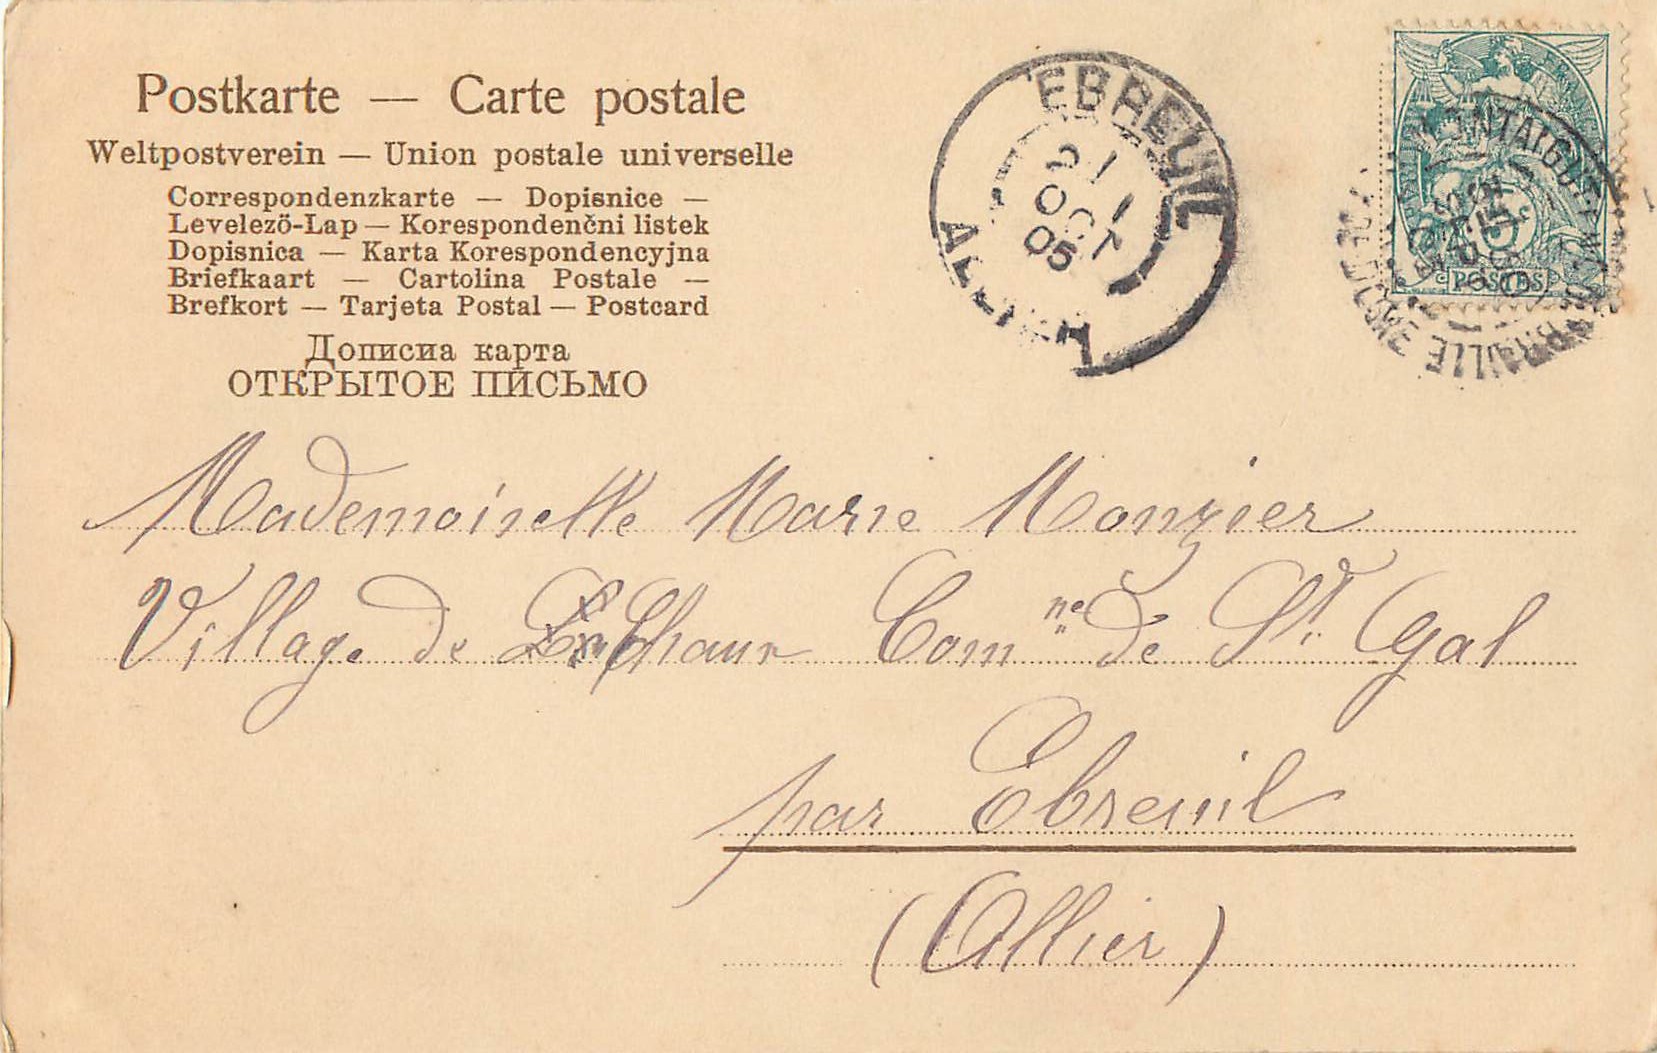 Postkarte — Carte postale
Weltpostverein — Union postale universelle
Correspondenzkarte — Dopisnice —
Levelező-Lap — Korespondenčni listek
Dopisnica — Karta Korespondencyjna
Briefkaart — Cartolina Postale —
Brefkort — Tarjeta Postal — Postcard
Дописиа карта
ОТКРЫТОЕ ПИСЬМО
EBREUIL
21
OCT
05
ALLIER
POSTES
Mademoiselle Marie Monzier
Village de Chaux Com^ne de S^t Gal
par Ebreuil
(Allier)